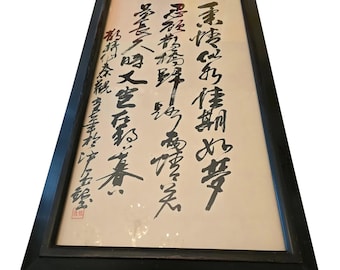 柔情似水佳期如夢
忍顧鵲橋歸路兩情若
是長久時又豈在朝々暮々
鵲橋仙秦觀